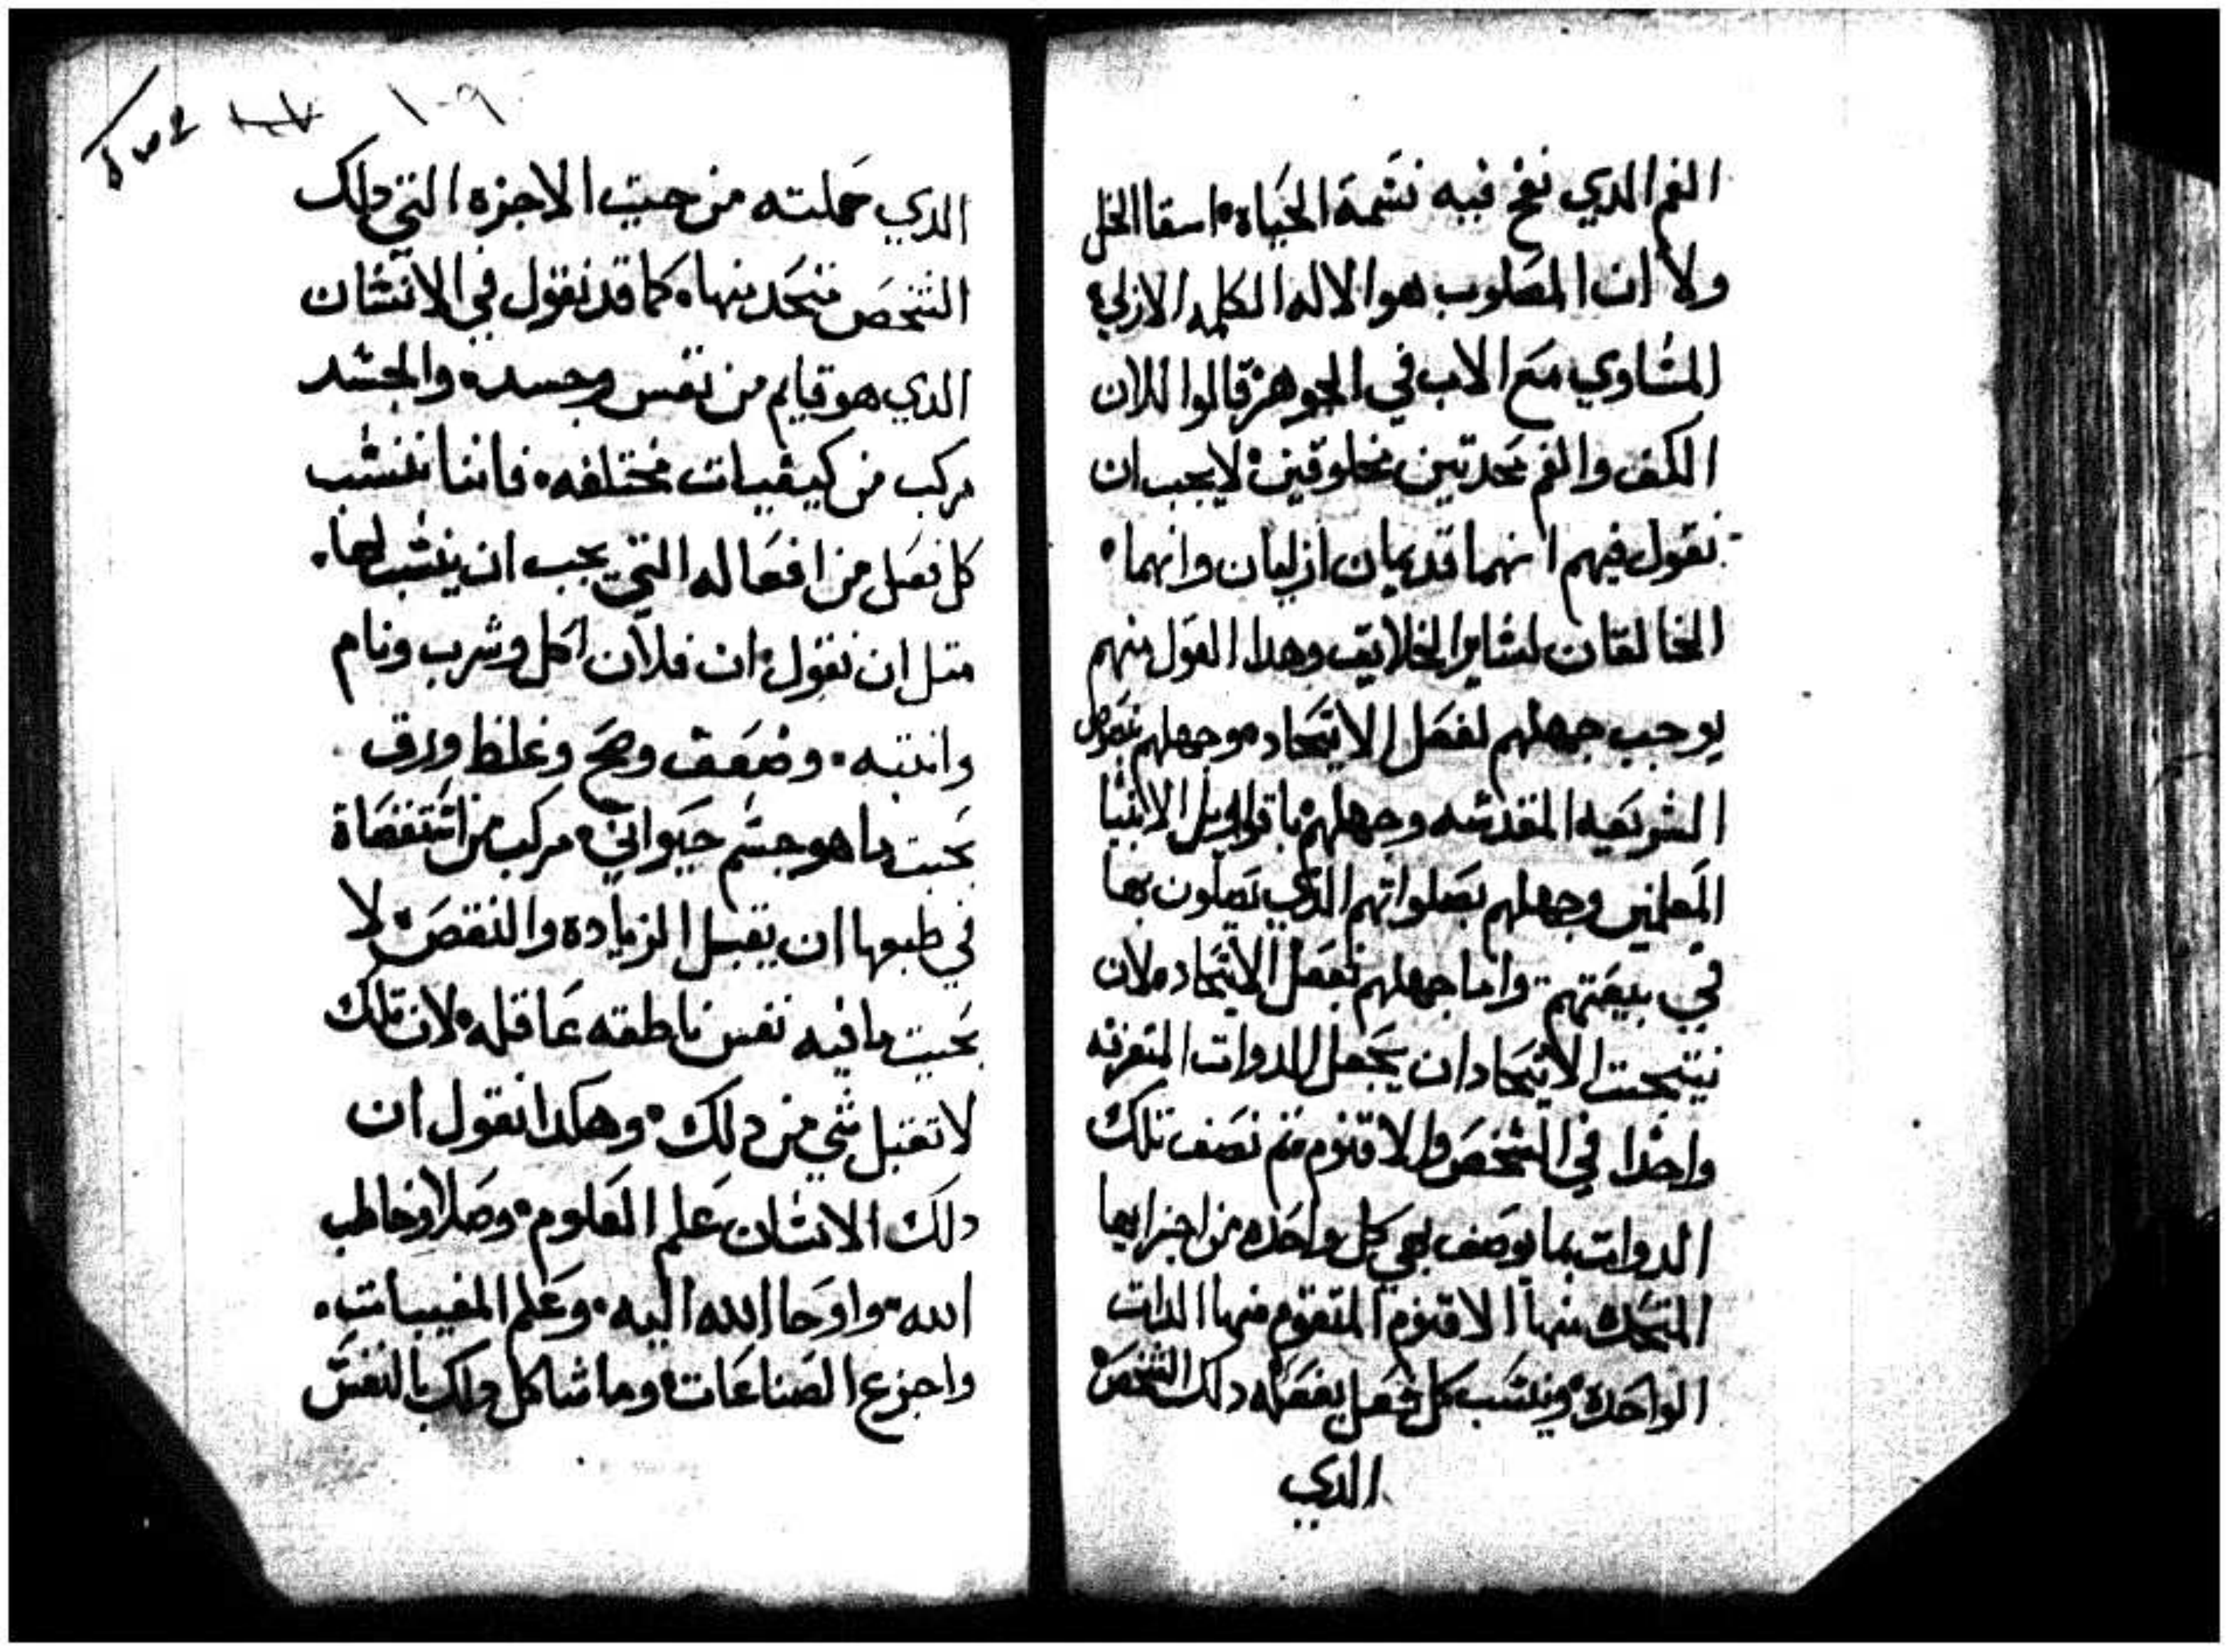 الفم الدي نفخ فيه نشمة الحياة اسقا الخل
ولا ان المصلوب هو الاله الكلمه الازلي
المشاوي مع الاب في الجوهر قالوا للان
الكف والفم محدتين مخلوقين لا يجب ان
نقول فيهم انهما قديمان ازليان وانهما
الخالقان لشاير الخلايق وهدا القول منهم
يوجب جهلهم لفعل الاتحاد وجهلهم نصوص
الشريعه المقدشه وجهلهم باقاويل الانبيا
المعلمين وجهلهم بصلواتهم الدي يصلون بها
في بيعتهم واما جهلهم بفعل الاتحاد فلان
نتيجت الاتحاد ان يجعل الدوات المتفرقه
واحدا في الشخص والاقنوم تم نصف تلك
الدوات بما يوصف بهي كل واحده من اجزايها
المتحد منها الاقنوم المتقوم منها الدات
الواحده وننشب كل فعل يفعله دلك الشخص
الدي
١٠٩
الدي حملته من حيت الاجزه التي دلك
الشخص متحد منها كما قد نقول في الانشان
الدي هو قايم من نفس وجسد والجشد
مركب من كيفيات مختلفه فاننا ننشب
كل فعل من افعاله التي يجب ان ينشب لها
متل ان نقول ان فلان اكل وشرب ونام
وانتبه وضعف وصح وغلظ ورق
بحيت ما هو جشم حيواني مركب من اشتقصاة
في طبعها ان يقبل الزياده والنقص لا
بحيت ما فيه نفس ناطقه عاقله لان تلك
لا تقبل شي من دلك وهكدا نقول ان
دلك الانشان علم العلوم وصلا وخاطب
الله واوحا الله اليه وعلم المغيبات
واخترع الصناعات وما شاكل دلك بالنفس